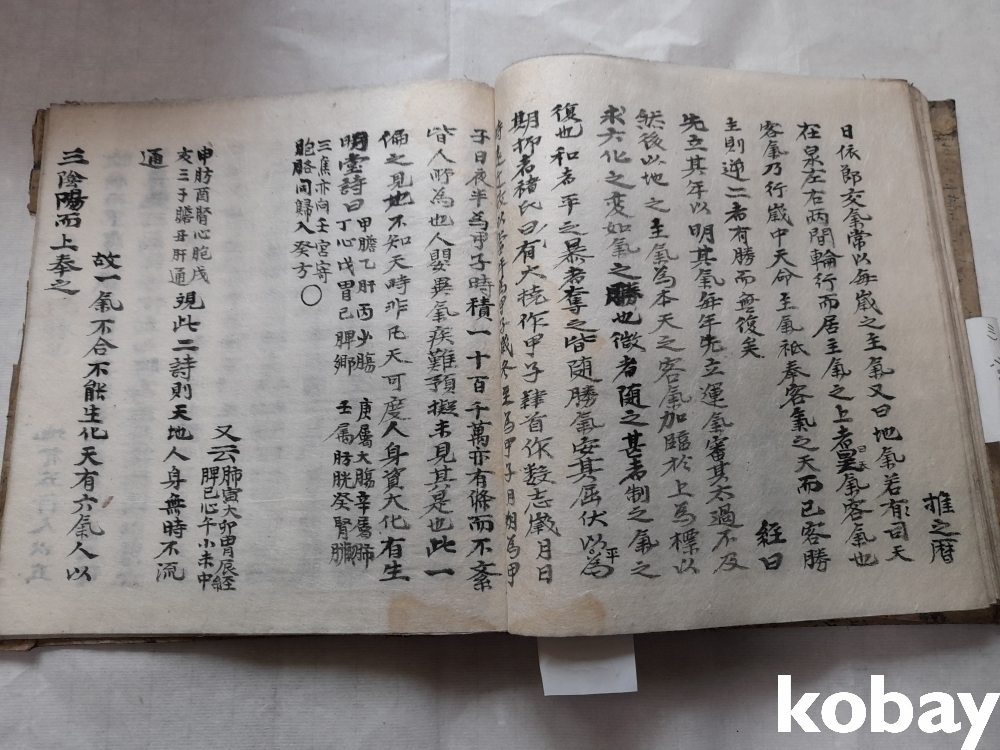 推之曆
日依郎交氣常以每歲之主氣又曰地氣若有司天
在泉左右兩間輪行而居主氣之上者曰客氣客氣也
客氣乃行歲中天命主氣祗奉客氣之天而已客勝
主則逆二者有勝而無復矣 經曰
先立其年以明其氣每年先立運氣審其太過不及
然後以地之主氣為本天之客氣加臨於上為標以
求六化之變如氣之勝也微者隨之甚者制之氣之
復也和者平之暴者奪之皆隨勝氣安其屈伏以平為
期 褚氏曰有大撓作甲子隸首作數志歲月日
時 冬至為甲子月朔為甲
子日夜半為甲子時積一十百千萬亦有條而不紊
皆人所為也人嬰異氣疾難預擬未見其是也此一
偏之見也不知天時非凡天可度人身資大化有生
明堂詩曰 甲膽乙肝丙少腸 庚屬大腸辛屬肺
丁心戊胃己脾鄉 壬屬膀胱癸腎臟
三焦亦向壬宮寄
胞胳同歸入癸方〇
又云肺寅大卯胃辰經
脾巳心午小未中
申膀酉腎心胞戌
亥三子膽丑肝通 視此二詩則天地人身無時不流
通
故一氣不合不能生化天有六氣人以
三陰陽而上奉之
kobay